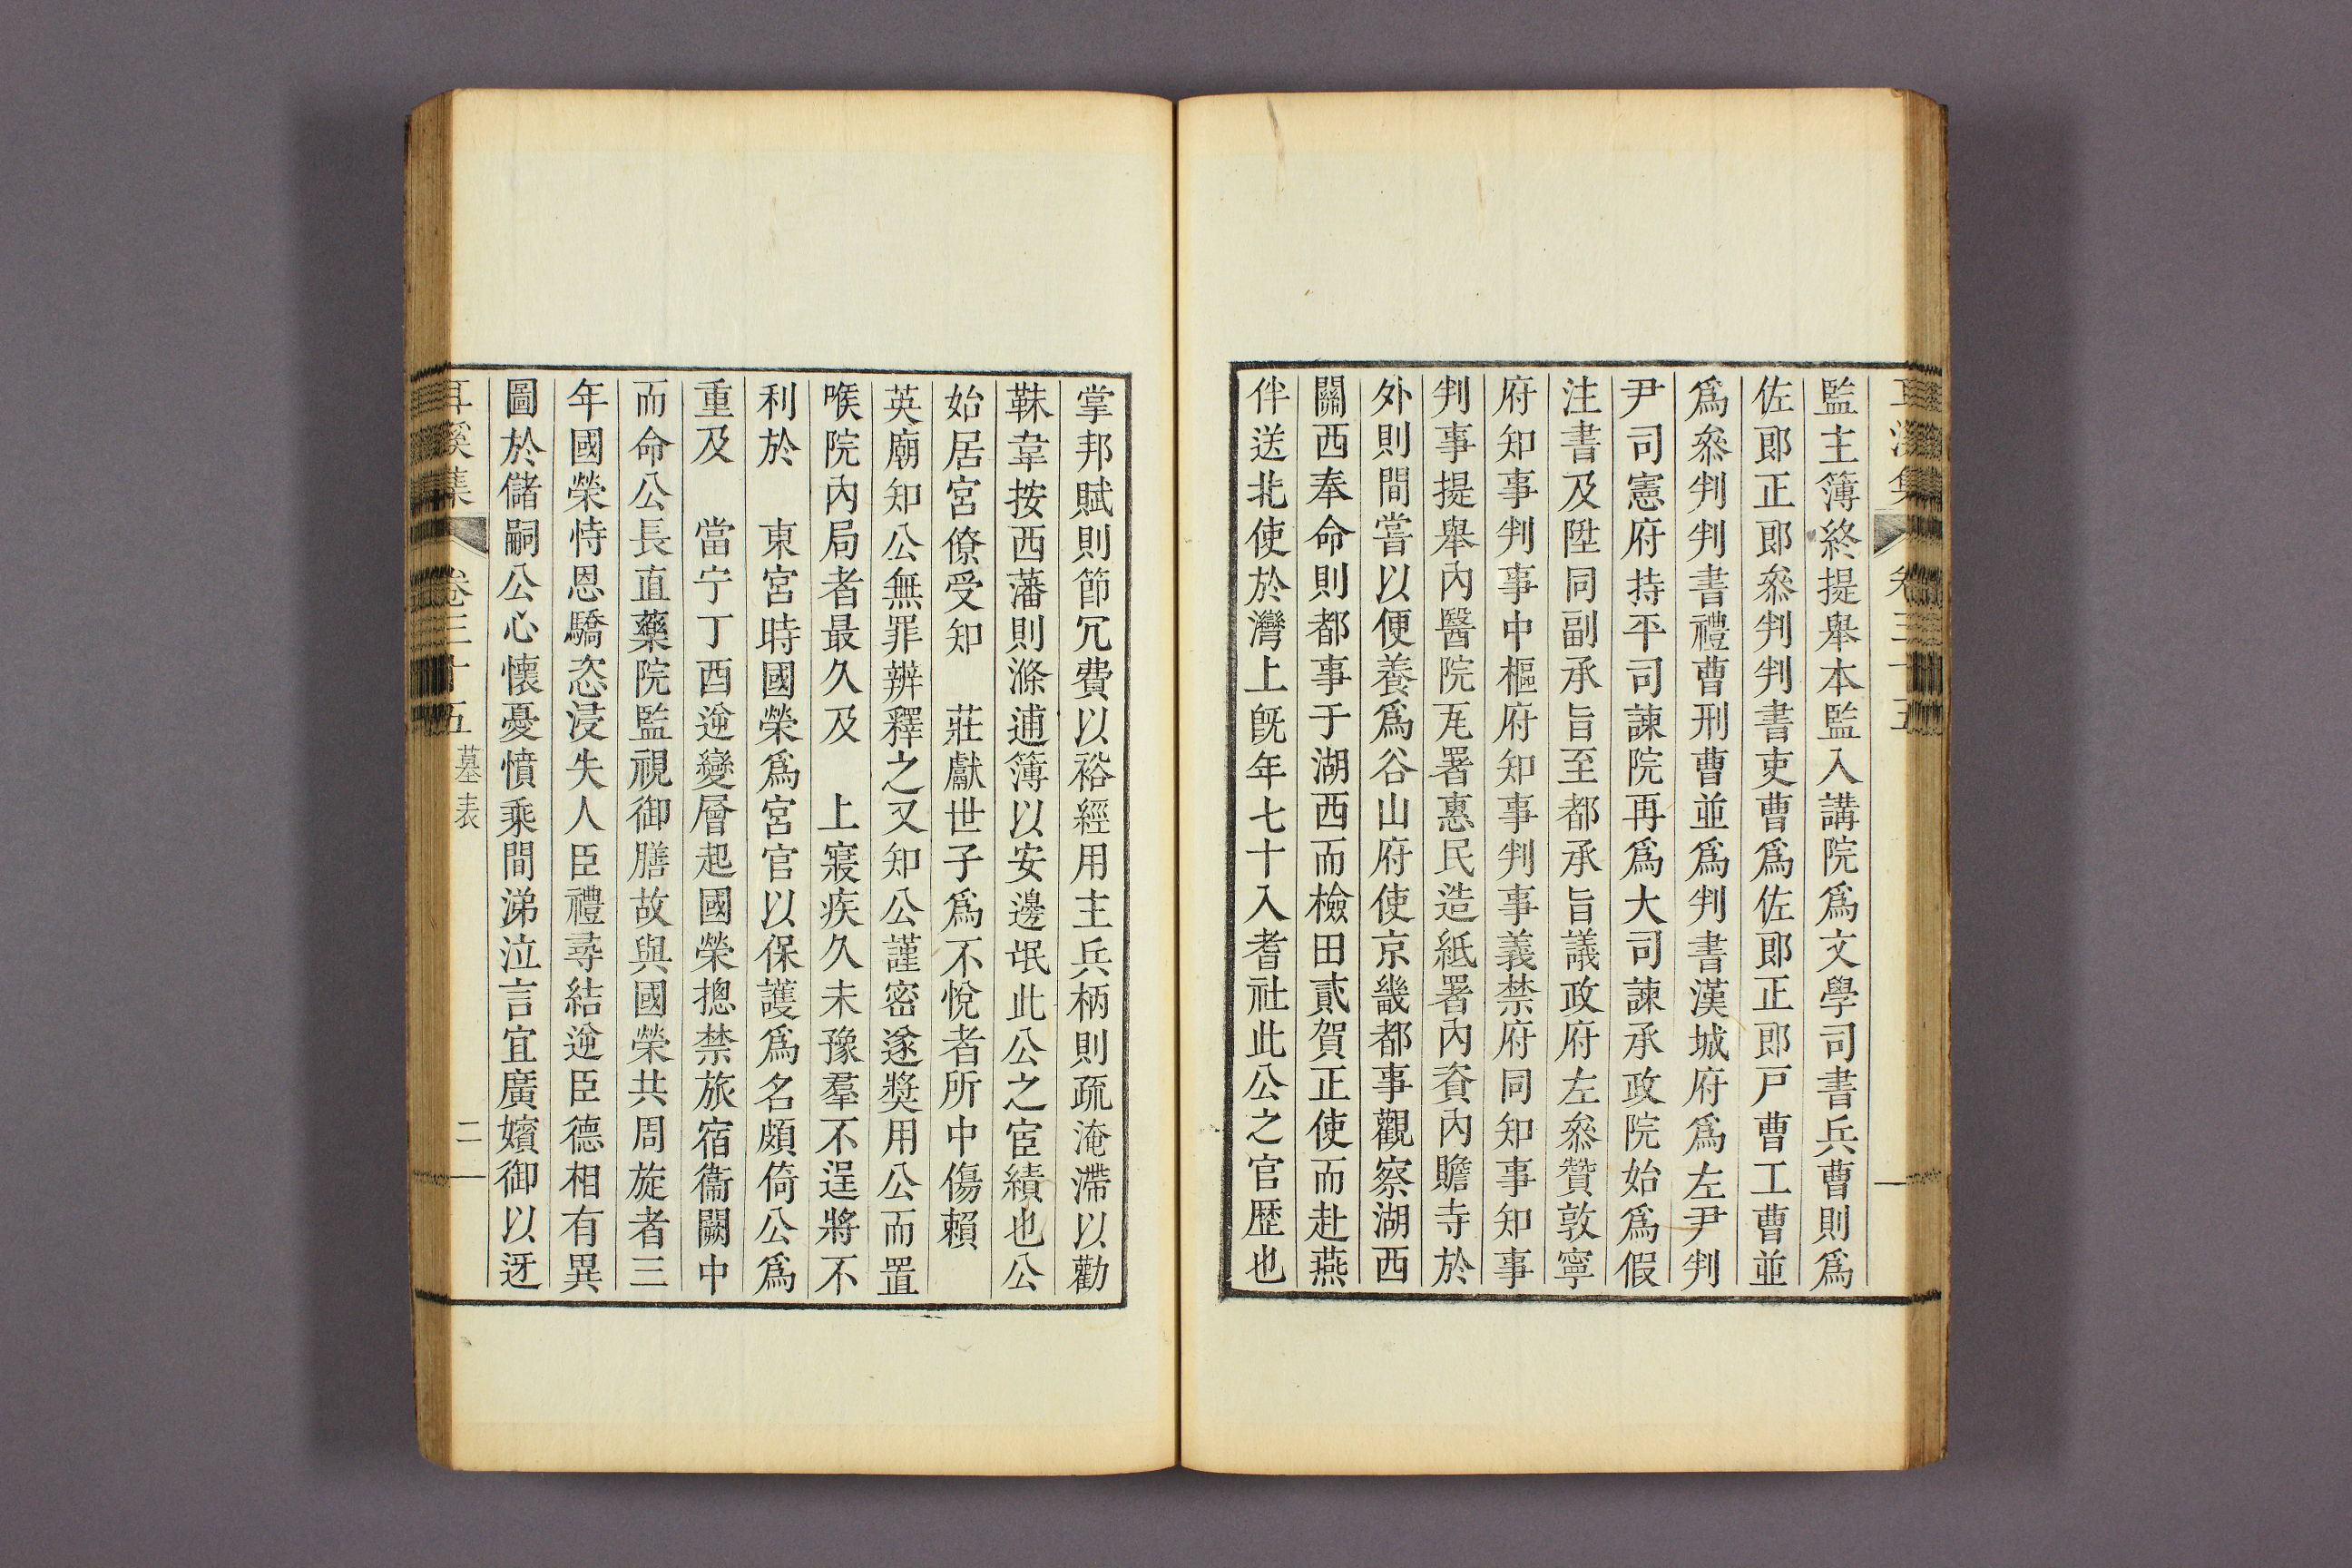 監主簿終提舉本監入講院爲文學司書兵曹則爲
佐郎正郎叅判判書吏曹爲佐郎正郎戶曹工曹並
爲叅判判書禮曹刑曹並爲判書漢城府爲左尹判
尹司憲府持平司諫院再爲大司諫承政院始爲假
注書及陞同副承旨至都承旨議政府左叅贊敦寧
府知事判事中樞府知事判事義禁府同知事知事
判事提舉內醫院瓦署惠民造紙署內資內贍寺於
外則間嘗以便養爲谷山府使京畿都事觀察湖西
關西奉命則都事于湖西而檢田貳賀正使而赴燕
伴送北使於灣上旣年七十入耆社此公之官歷也
掌邦賦則節冗費以裕經用主兵柄則疏淹滯以勸
韎韋按西藩則滌逋簿以安邊氓此公之宦績也公
始居宮僚受知　莊獻世子爲不悅者所中傷賴
英廟知公無罪辨釋之又知公謹密遂奬用公而置
喉院內局者最久及　上寢疾久未豫羣不逞將不
利於　東宮時國榮爲宮官以保護爲名頗倚公爲
重及　當宁丁酉逆變層起國榮摠禁旅宿衞闕中
而命公長直藥院監視御膳故與國榮共周旋者三
年國榮恃恩驕恣浸失人臣禮尋結逆臣德相有異
圖於儲嗣公心懷憂憤乘間涕泣言宜廣嬪御以迓
耳溪集　卷三十五　墓表　二